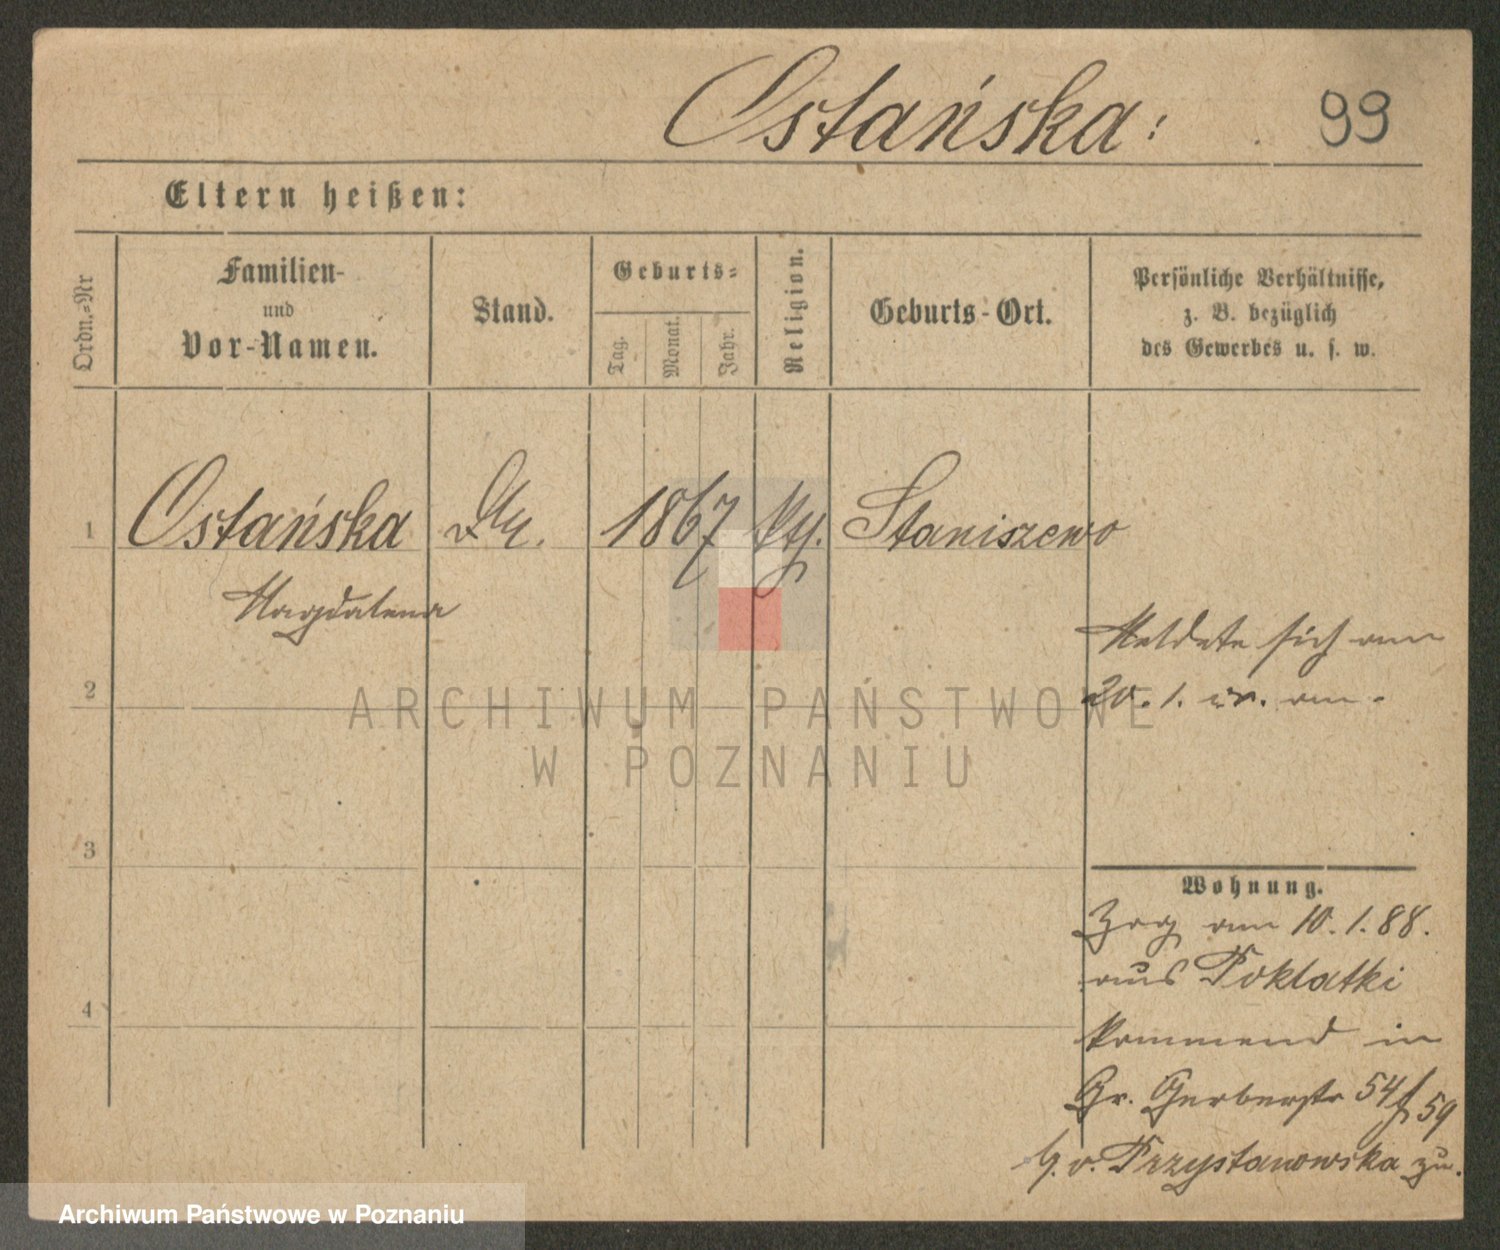 Ostańska:
99
Eltern heißen:
Ordn.=Nr
Familien-
und
Vor-Namen.
Stand.
Geburts=
Tag.
Monat.
Jahr.
Religion.
Geburts-Ort.
Persönliche Verhältnisse,
z. B. bezüglich
des Gewerbes u. s. w.
1
Ostańska
1867
Staniszewo
Magdalena
Meldete sich am
20. 1. an.
2
ARCHIWUM PAŃSTWOWE
W POZNANIU
3
Wohnung.
Zog am 10. 1. 88.
aus Poklatki
4
kommend in
Gr. Gerberstr 54 59
b. v. Przystanowska zu.
Archiwum Państwowe w Poznaniu